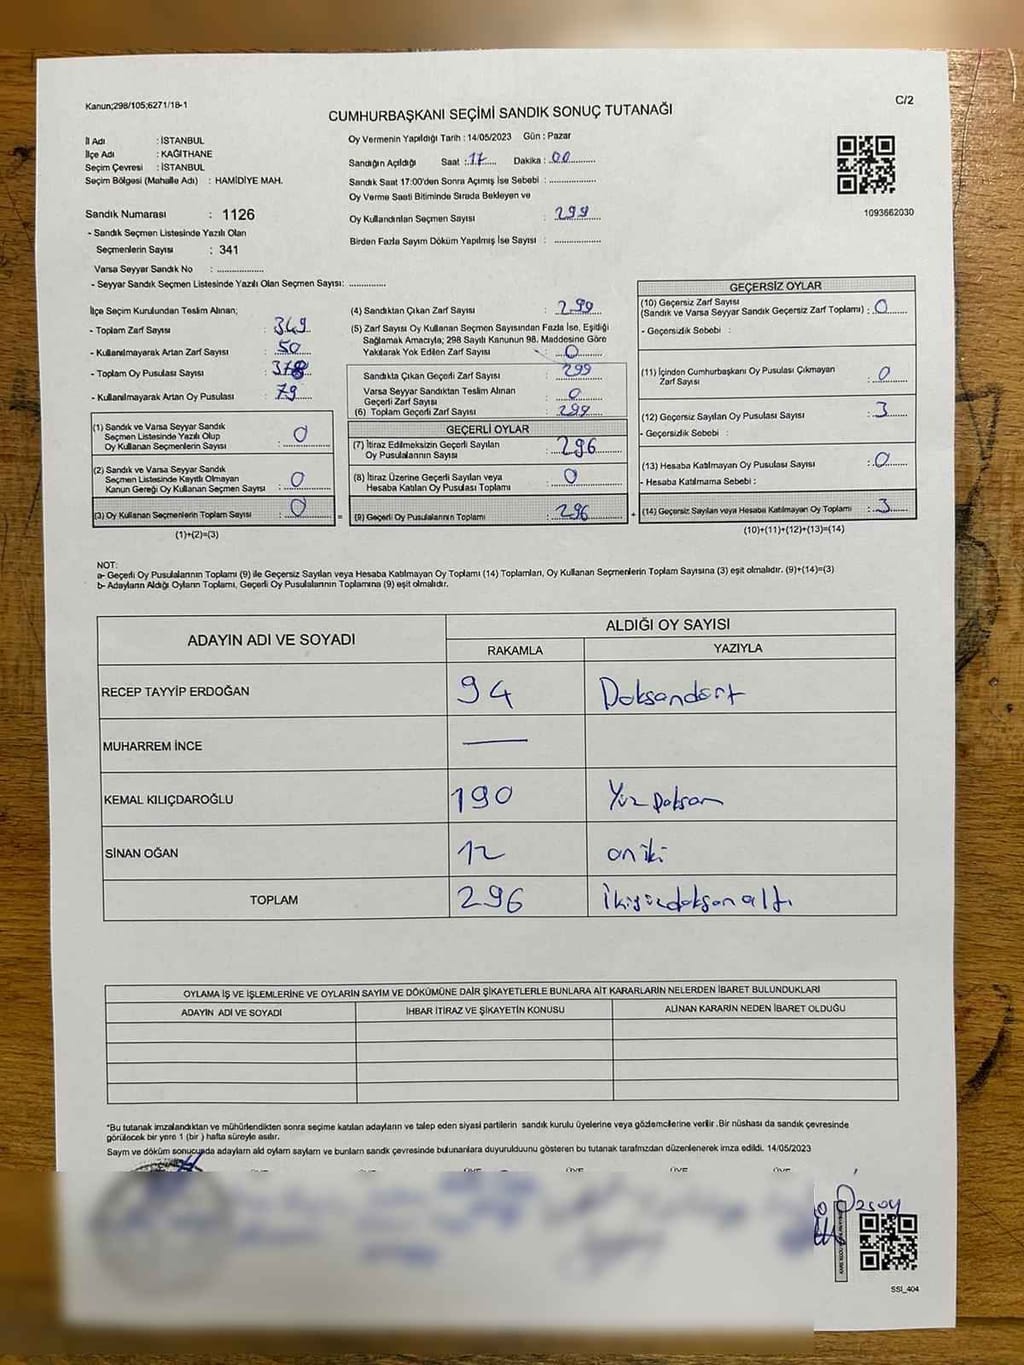 Kanun;298/105;6271/18-1
C/2
CUMHURBAŞKANI SEÇİMİ SANDIK SONUÇ TUTANAĞI
İl Adı : İSTANBUL
İlçe Adı : KAĞITHANE
Seçim Çevresi : İSTANBUL
Seçim Bölgesi (Mahalle Adı) : HAMİDİYE MAH.
Sandık Numarası : 1126
- Sandık Seçmen Listesinde Yazılı Olan
Seçmenlerin Sayısı : 341
Varsa Seyyar Sandık No : ..................
- Seyyar Sandık Seçmen Listesinde Yazılı Olan Seçmen Sayısı: ..............
Oy Vermenin Yapıldığı Tarih : 14/05/2023 Gün : Pazar
Sandığın Açıldığı Saat : 17 Dakika : 00
Sandık Saat 17:00'den Sonra Açımış İse Sebebi : ..................
Oy Verme Saati Bitiminde Sırada Bekleyen ve
Oy Kullandırılan Seçmen Sayısı : 299
Birden Fazla Sayım Döküm Yapılmış İse Sayısı : ..................
1093662030
İlçe Seçim Kurulundan Teslim Alınan;
- Toplam Zarf Sayısı : 349
- Kullanılmayarak Artan Zarf Sayısı : 50
- Toplam Oy Pusulası Sayısı : 378
- Kullanılmayarak Artan Oy Pusulası : 79
(1) Sandık ve Varsa Seyyar Sandık
Seçmen Listesinde Yazılı Olup
Oy Kullanan Seçmenlerin Sayısı : 0
(2) Sandık ve Varsa Seyyar Sandık
Seçmen Listesinde Kayıtlı Olmayan
Kanun Gereği Oy Kullanan Seçmen Sayısı : 0
(3) Oy Kullanan Seçmenlerin Toplam Sayısı : 0
(1)+(2)=(3)
(4) Sandıktan Çıkan Zarf Sayısı : 299
(5) Zarf Sayısı Oy Kullanan Seçmen Sayısından Fazla İse, Eşitliği
Sağlamak Amacıyla; 298 Sayılı Kanunun 98. Maddesine Göre
Yakılarak Yok Edilen Zarf Sayısı : 0
Sandıkta Çıkan Geçerli Zarf Sayısı : 299
Varsa Seyyar Sandıktan Teslim Alınan
Geçerli Zarf Sayısı : 0
(6) Toplam Geçerli Zarf Sayısı : 299
GEÇERLİ OYLAR
(7) İtiraz Edilmeksizin Geçerli Sayılan
Oy Pusulalarının Sayısı : 296
(8) İtiraz Üzerine Geçerli Sayılan veya
Hesaba Katılan Oy Pusulası Toplamı : 0
= (9) Geçerli Oy Pusulalarının Toplamı : 296 +
GEÇERSİZ OYLAR
(10) Geçersiz Zarf Sayısı
(Sandık ve Varsa Seyyar Sandık Geçersiz Zarf Toplamı) : 0
- Geçersizlik Sebebi :
(11) İçinden Cumhurbaşkanı Oy Pusulası Çıkmayan
Zarf Sayısı : 0
(12) Geçersiz Sayılan Oy Pusulası Sayısı : 3
- Geçersizlik Sebebi :
(13) Hesaba Katılmayan Oy Pusulası Sayısı : 0
- Hesaba Katılmama Sebebi :
(14) Geçersiz Sayılan veya Hesaba Katılmayan Oy Toplamı : 3
(10)+(11)+(12)+(13)=(14)
NOT:
a- Geçerli Oy Pusulalarının Toplamı (9) ile Geçersiz Sayılan veya Hesaba Katılmayan Oy Toplamı (14) Toplamları, Oy Kullanan Seçmenlerin Toplam Sayısına (3) eşit olmalıdır. (9)+(14)=(3)
b- Adayların Aldığı Oyların Toplamı, Geçerli Oy Pusulalarının Toplamına (9) eşit olmalıdır.
ADAYIN ADI VE SOYADI
ALDIĞI OY SAYISI
RAKAMLA YAZIYLA
RECEP TAYYİP ERDOĞAN 94 Doksandört
MUHARREM İNCE —
KEMAL KILIÇDAROĞLU 190 Yüz Doksan
SİNAN OĞAN 12 on iki
TOPLAM 296 İkiyüzdoksan altı
OYLAMA İŞ VE İŞLEMLERİNE VE OYLARIN SAYIM VE DÖKÜMÜNE DAİR ŞİKAYETLERLE BUNLARA AİT KARARLARIN NELERDEN İBARET BULUNDUKLARI
ADAYIN ADI VE SOYADI İHBAR İTİRAZ VE ŞİKAYETİN KONUSU ALINAN KARARIN NEDEN İBARET OLDUĞU
*Bu tutanak imzalandıktan ve mühürlendikten sonra seçime katılan adayların ve talep eden siyasi partilerin sandık kurulu üyelerine veya gözlemcilerine verilir .Bir nüshası da sandık çevresinde
görülecek bir yere 1 (bir ) hafta süreyle asılır.
Sayım ve döküm sonucunda adayların aldı oyların sayıların ve bunların sandık çevresinde bulunanlara duyurulduunu gösteren bu tutanak tarafımızdan düzenlenerek imza edildi. 14/05/2023
ÜYE ÜYE ÜYE ÜYE ÜYE
Özsoy
SSI_404